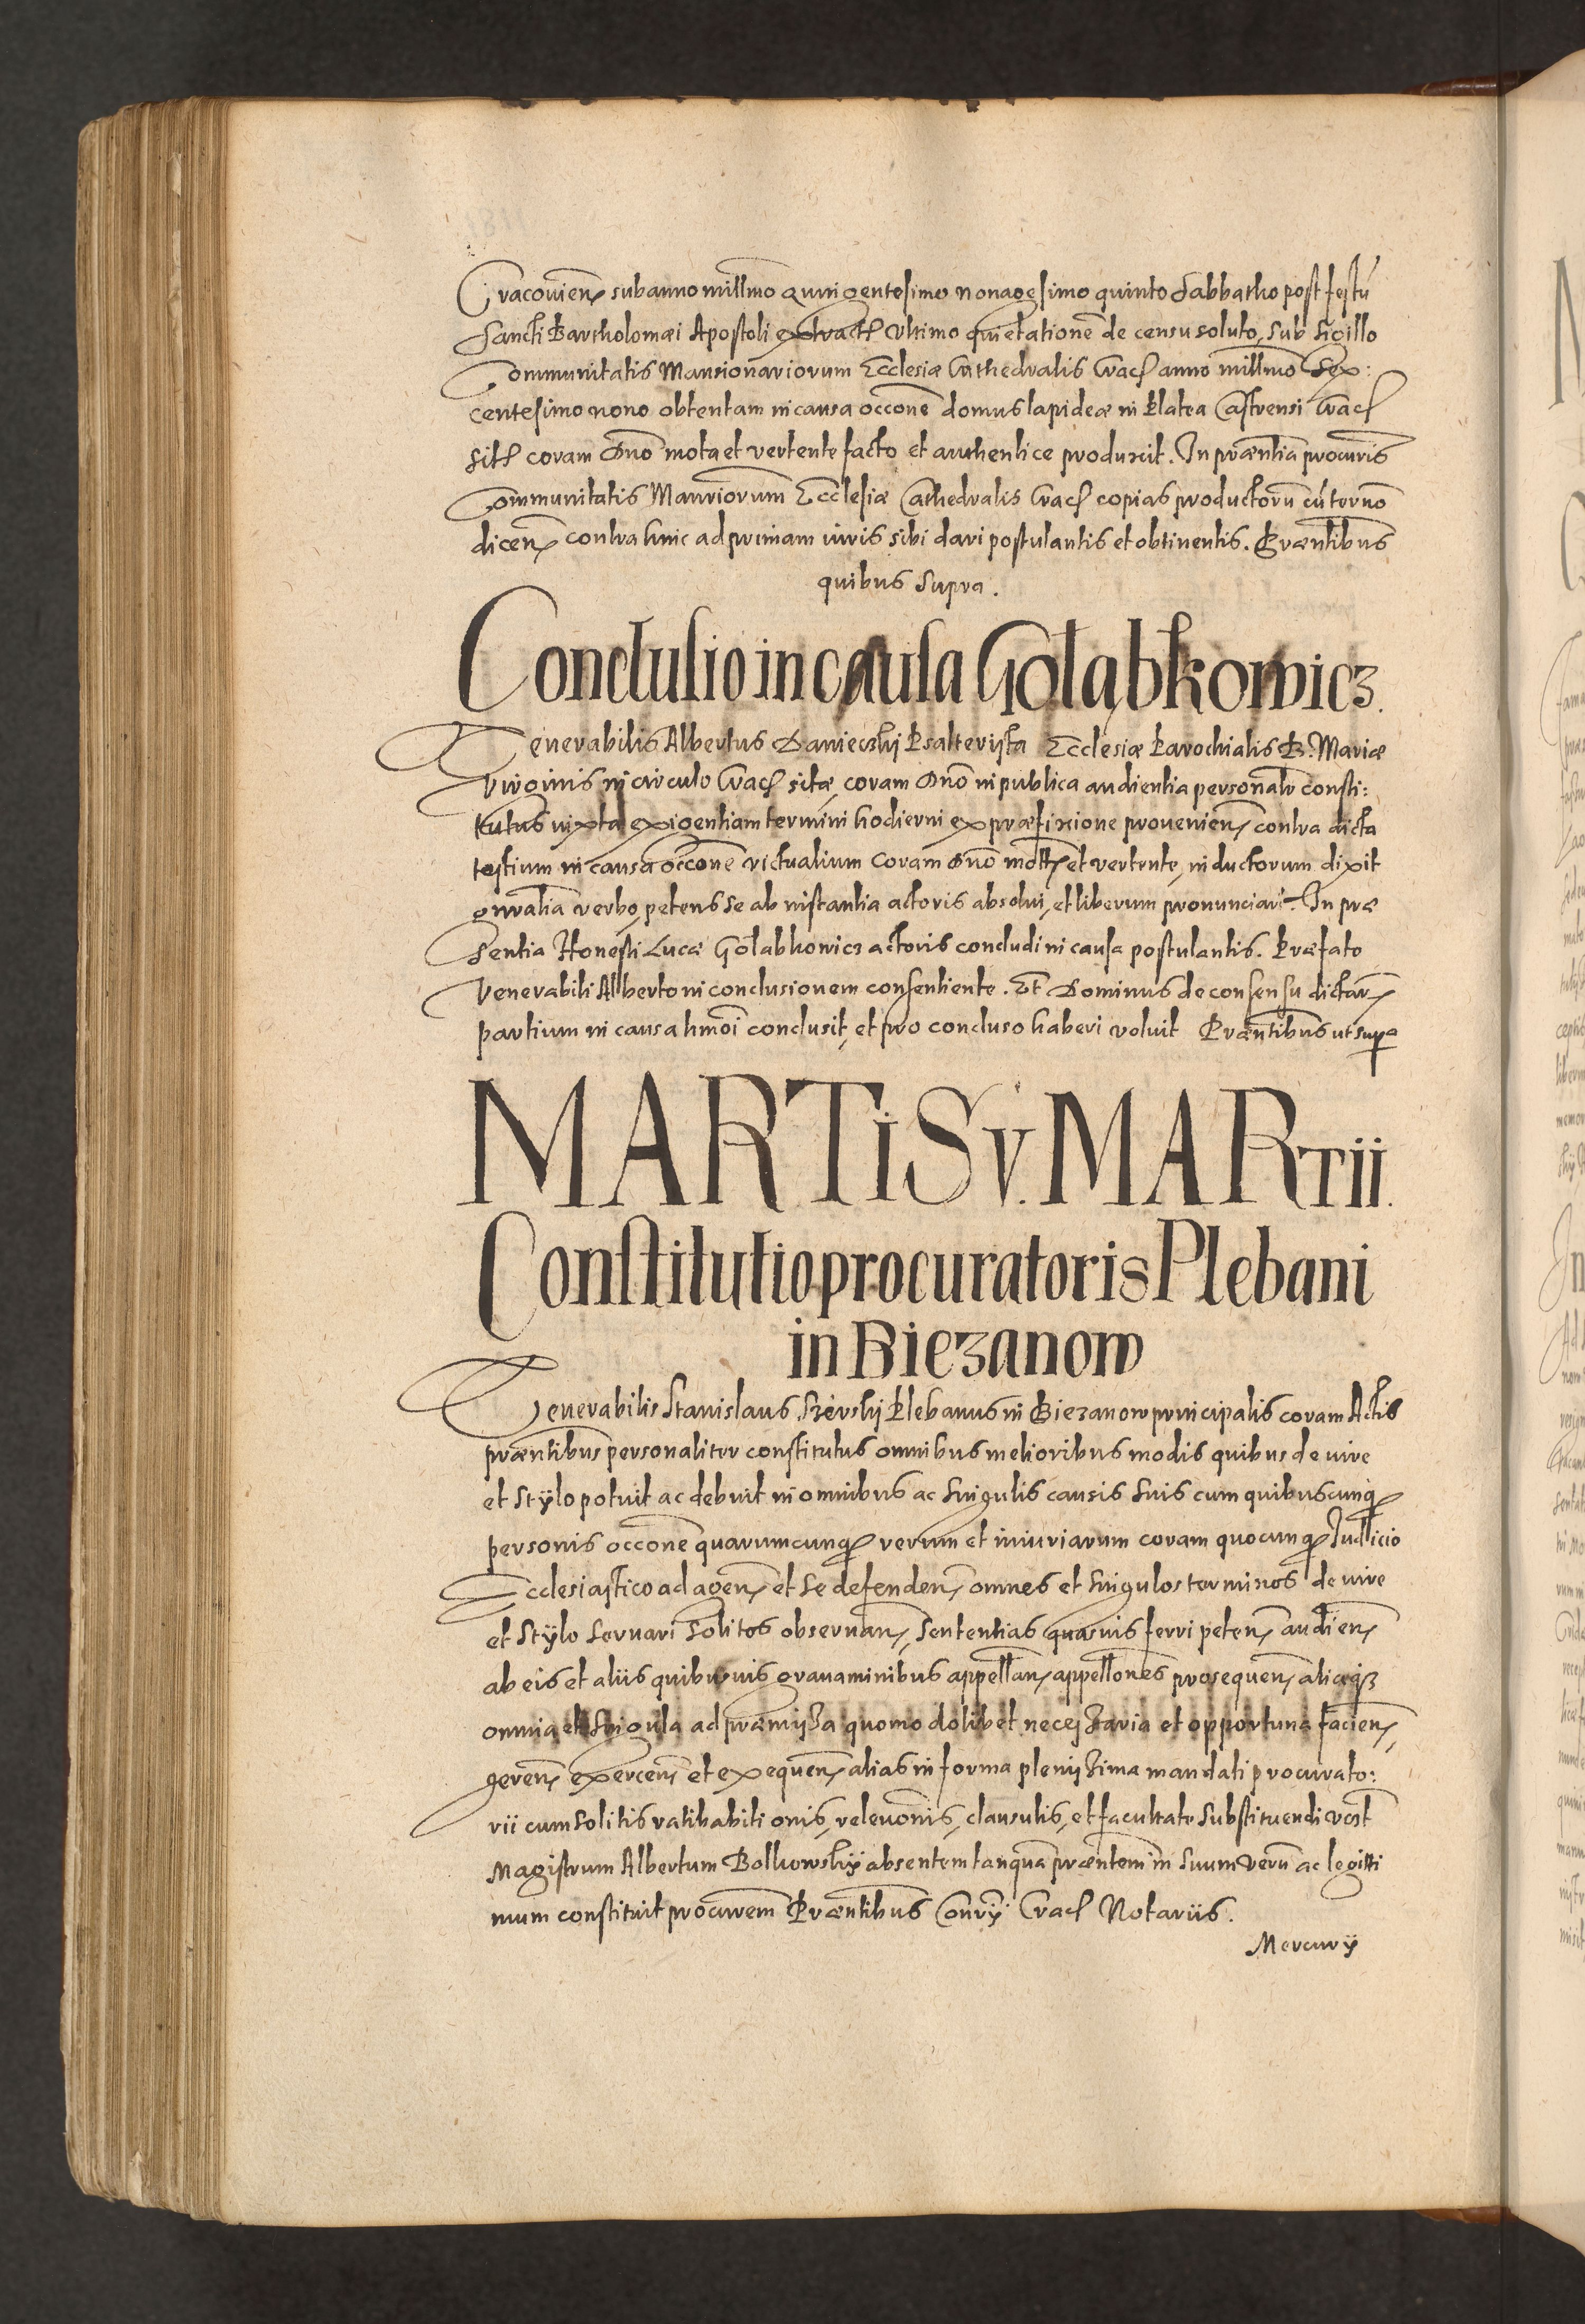 Cracovien sub anno millmo quingentesimo nonagesimo quinto Sabbatho post festũ
Sancti Bartholomæi Apostoli extract Vltimo quietationẽ de censu soluto, sub Sigillo
Communitatis Mansionariorum Ecclesiæ Cathedralis Crac anno millmo Sex:
centesimo nono obtentam in causa occone domus lapideæ in Platea Castrensi Crac
sit coram Dno mota et vertente facto et authentice produxit. In præntia procuris
Communitatis Manriorum Ecclesiæ Cathedralis Crac copias productorũ cũ termo
dicen contra hinc ad primam iuris sibi dari postulantis et obtinentis. Præntibus
quibus supra.
Conclusio in causa Gołąbkowicz.
Venerabilis Albertus Danieczkij Psalterijsta Ecclesiæ Parochialis B. Mariæ
Virginis in circulo Crac sitæ, coram Dno in publica audientia personalr consti:
tutus iuxta exigentiam termini hodierni ex præfixione prouenien contra dicta
testium in causa occone victualium coram Dno mott et vertente, inductorum dixit
gnralia verbo, petens se ab instantia actoris absolui, et liberum pronunciari. In præ
sentia Honesti Lucæ Gołabkowicz actoris concludi in causa postulantis. Præfato
Venerabili Alberto in conclusionem consentiente. Et Dominus de consensu dictar
partium in causa hmoi conclusit, et pro concluso haberi voluit Præntibus ut supra
MARTIS V. MARTII.
Constitutio procuratoris Plebani
in Biezanow
Venerabilis Stanislaus Plebanus in Biezanow principalis coram Actis
præntibus personaliter constitutus omnibus melioribus modis quibus de iure
et Stÿlo potuit ac debuit in omnibus ac singulis causis suis cum quibuscunq
personis occone quarumcunq rerum et iniuriarum coram quocunq Iudicio
Ecclesiastico ad agen et se defenden omnes et singulos terminos de iure
et Stÿlo seruari solitos obseruan, Sententias quasuis ferri peten audien
ab eis et aliis quibusuis grauaminibus appellan, appellones prosequen aliaq
omnia et singula ad præmissa quomodolibet necessaria et opportuna facien,
geren exercen et exequen alias in forma plenissima mandati procurato:
rii cum solitis ratihabitionis, releuonis, clausulis, et facultate substituendi vost
Magistrum Albertum Bolkowskÿ absentem tanquã præntem in suum verũ ac legitti
mum constituit procurem Præntibus Conrÿ Crac Notariis.
Mercurÿ